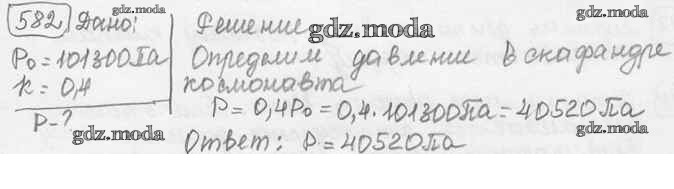 582. Дано:
P₀ = 101300 Па
k = 0,4
P - ?
gdz.moda
Решение
gdz.moda
Определим давление в скафандре
космонавта
gdz.moda
P = 0,4P₀ = 0,4 · 101300 Па = 40520 Па
gdz.moda
Ответ: P = 40520 Па
gdz.moda